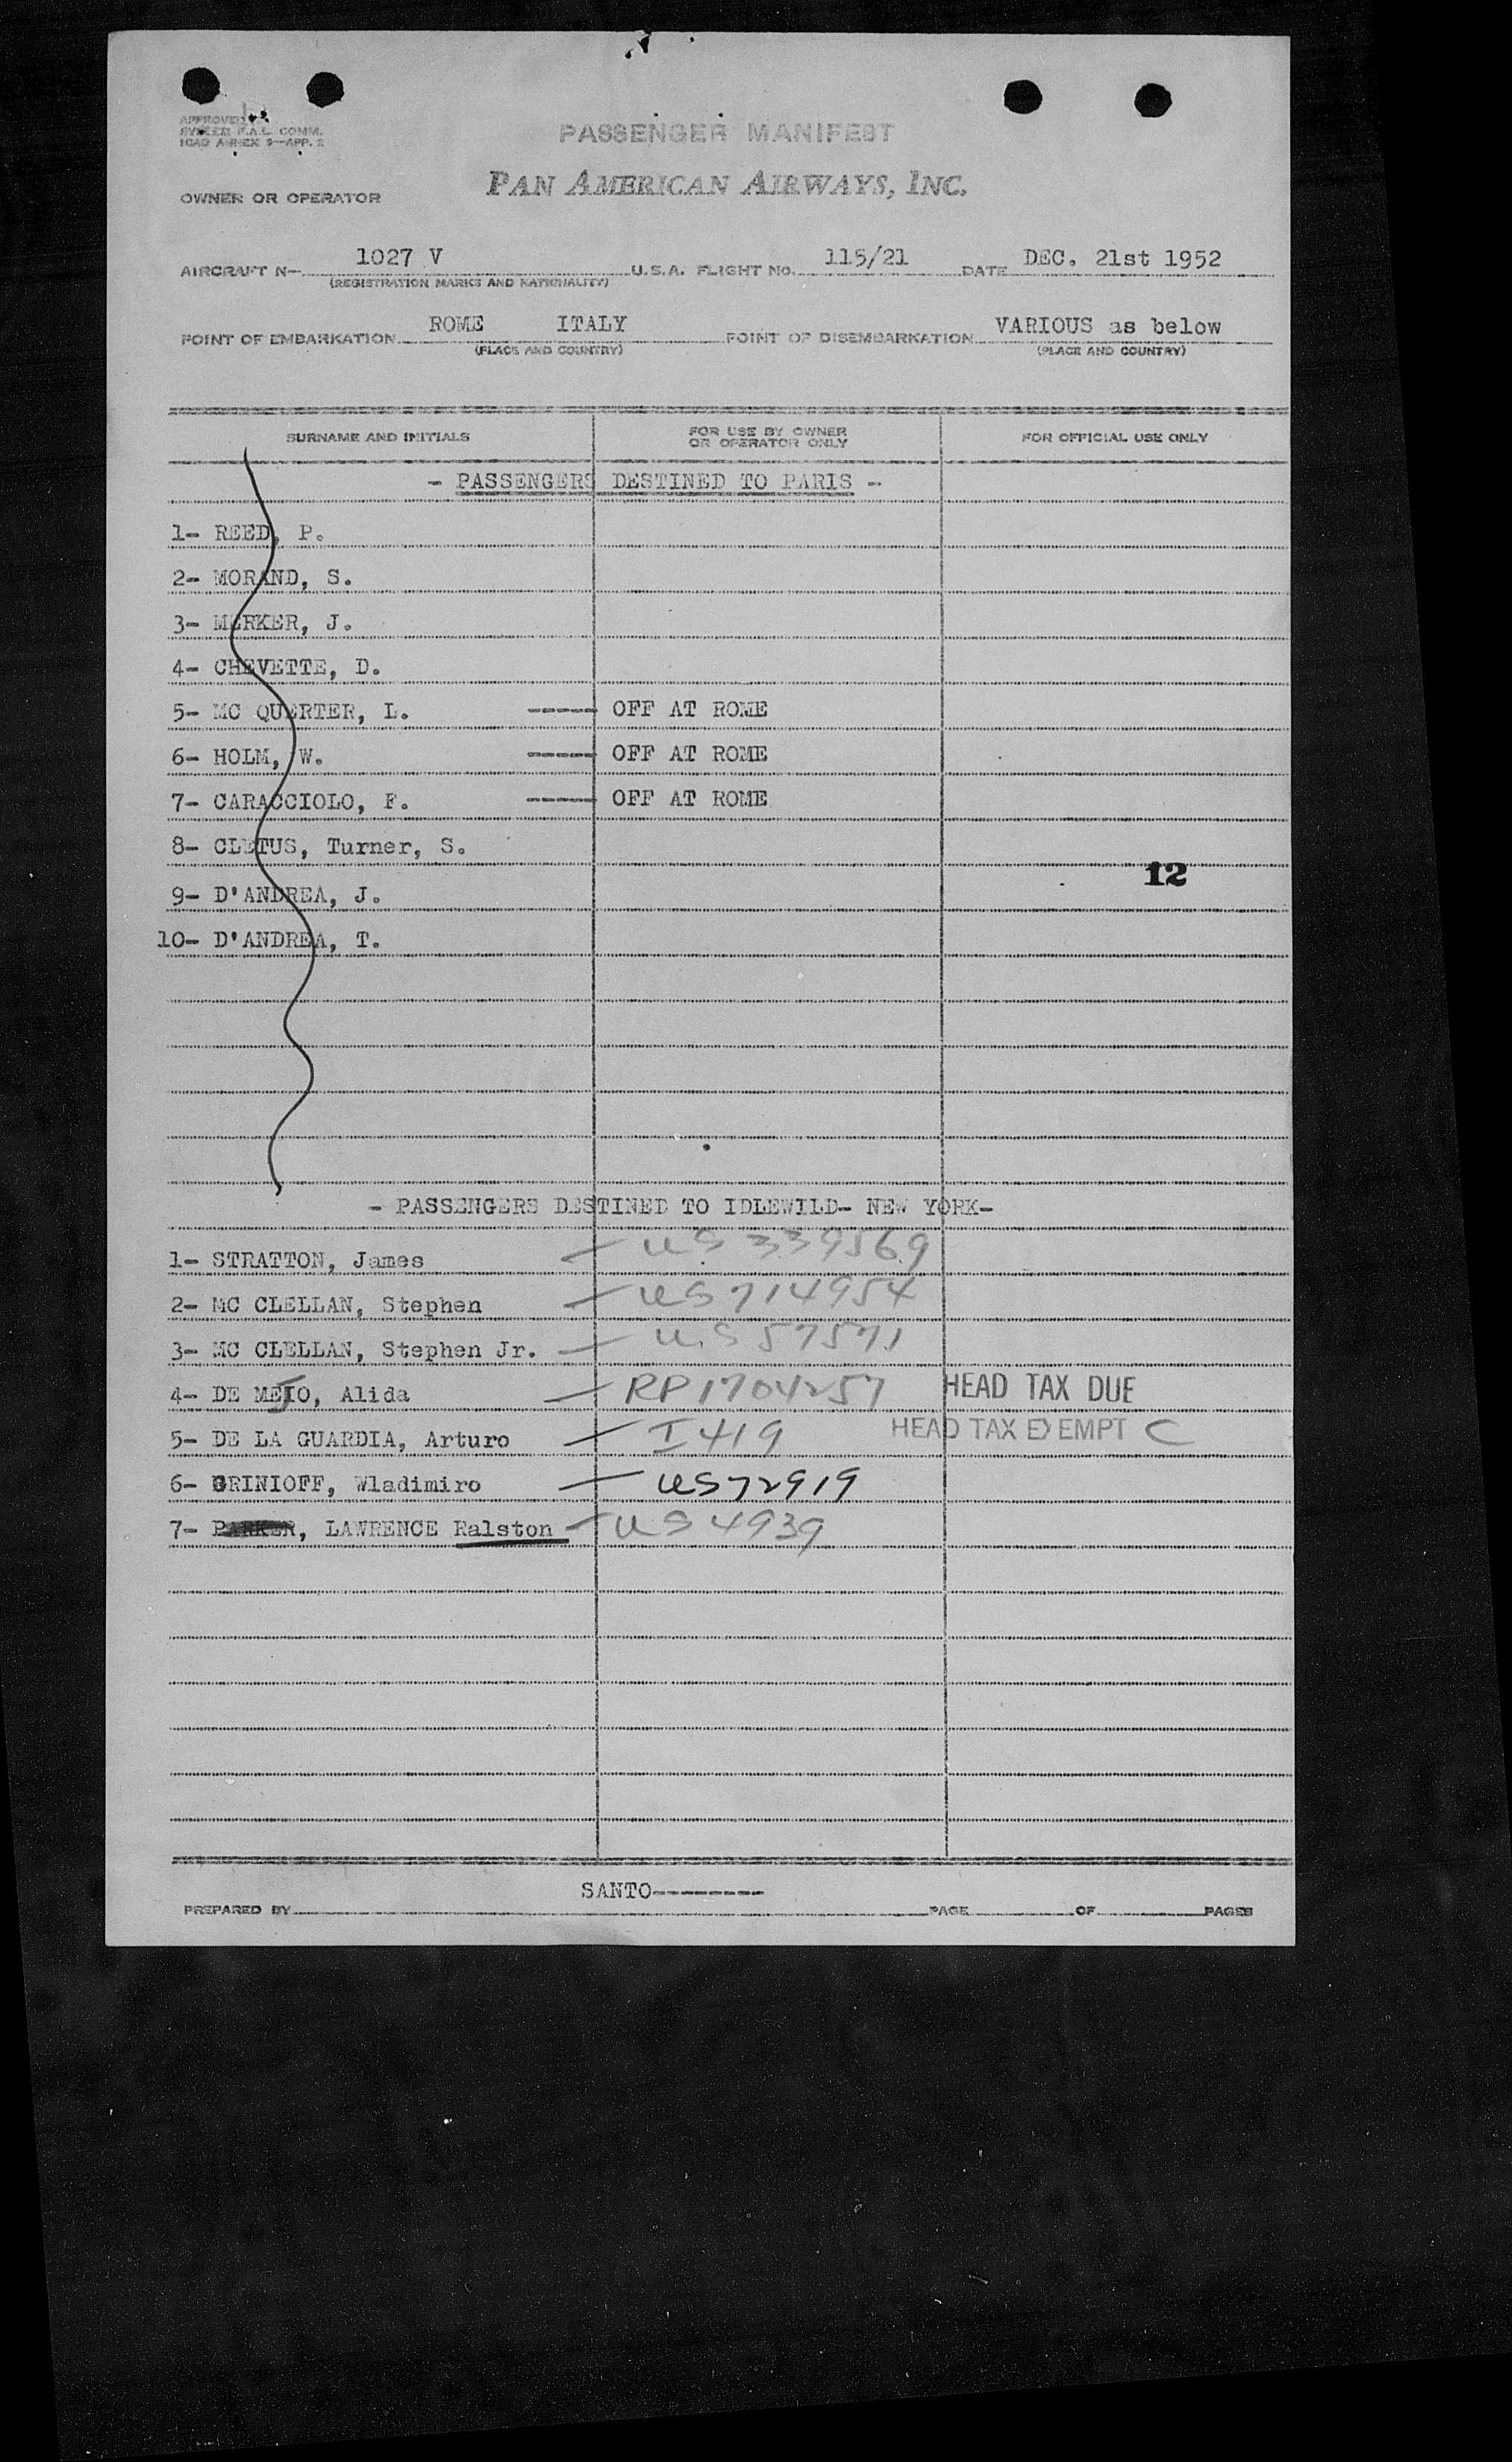 APPROVED
SYSTEM F.A.L. COMM.
ICAO ANNEX 9—APP. 2
PASSENGER MANIFEST
OWNER OR OPERATOR PAN AMERICAN AIRWAYS, INC.
AIRCRAFT N— 1027 V U.S.A. FLIGHT NO. 115/21 DATE DEC. 21st 1952
(REGISTRATION MARKS AND NATIONALITY)
POINT OF EMBARKATION ROME ITALY POINT OF DISEMBARKATION VARIOUS as below
(PLACE AND COUNTRY) (PLACE AND COUNTRY)
SURNAME AND INITIALS FOR USE BY OWNER OR OPERATOR ONLY FOR OFFICIAL USE ONLY
- PASSENGERS DESTINED TO PARIS -
1- REED, P.
2- MORAND, S.
3- MERKER, J.
4- CHEVETTE, D.
5- MC QUERTER, L. ----- OFF AT ROME
6- HOLM, W. ----- OFF AT ROME
7- CARACCIOLO, F. ----- OFF AT ROME
8- CLETUS, Turner, S.
12
9- D'ANDREA, J.
10- D'ANDREA, T.
- PASSENGERS DESTINED TO IDLEWILD- NEW YORK-
1- STRATTON, James — US 339569
2- MC CLELLAN, Stephen — US 714954
3- MC CLELLAN, Stephen Jr. — U.S 57571
4- DE MEJO, Alida — RP1704257 HEAD TAX DUE
5- DE LA GUARDIA, Arturo — I 419 HEAD TAX EXEMPT C
6- GRINIOFF, Wladimiro — US72919
7- PARKER, LAWRENCE Ralston — US 4939
SANTO---------
PREPARED BY PAGE OF PAGES